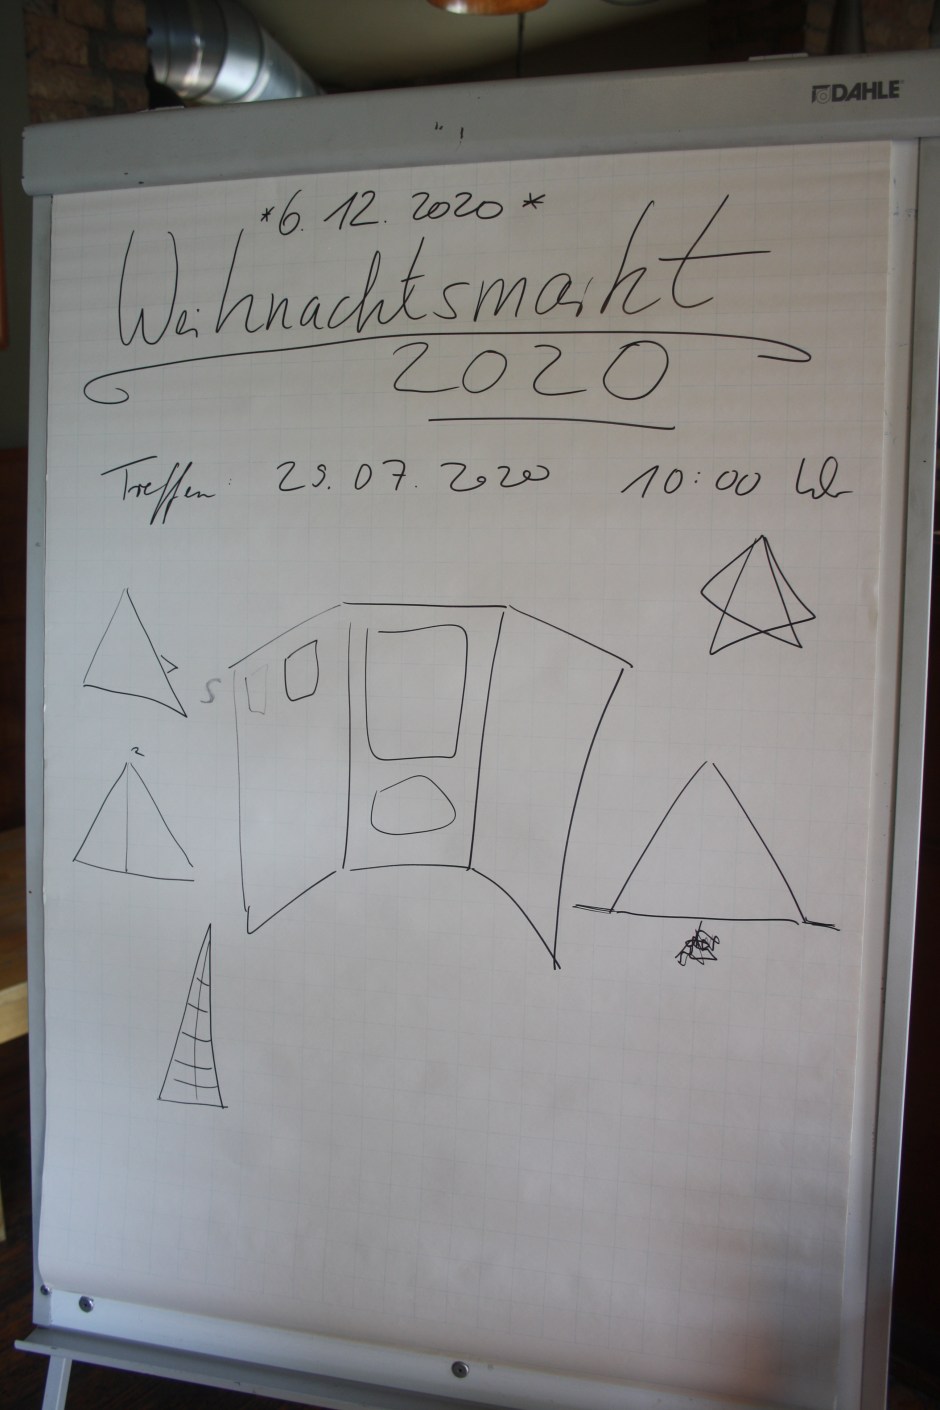 DAHLE
*6. 12. 2020*
Weihnachtsmarkt
2020
Treffen: 29. 07. 2020 10:00 Uhr
S
2